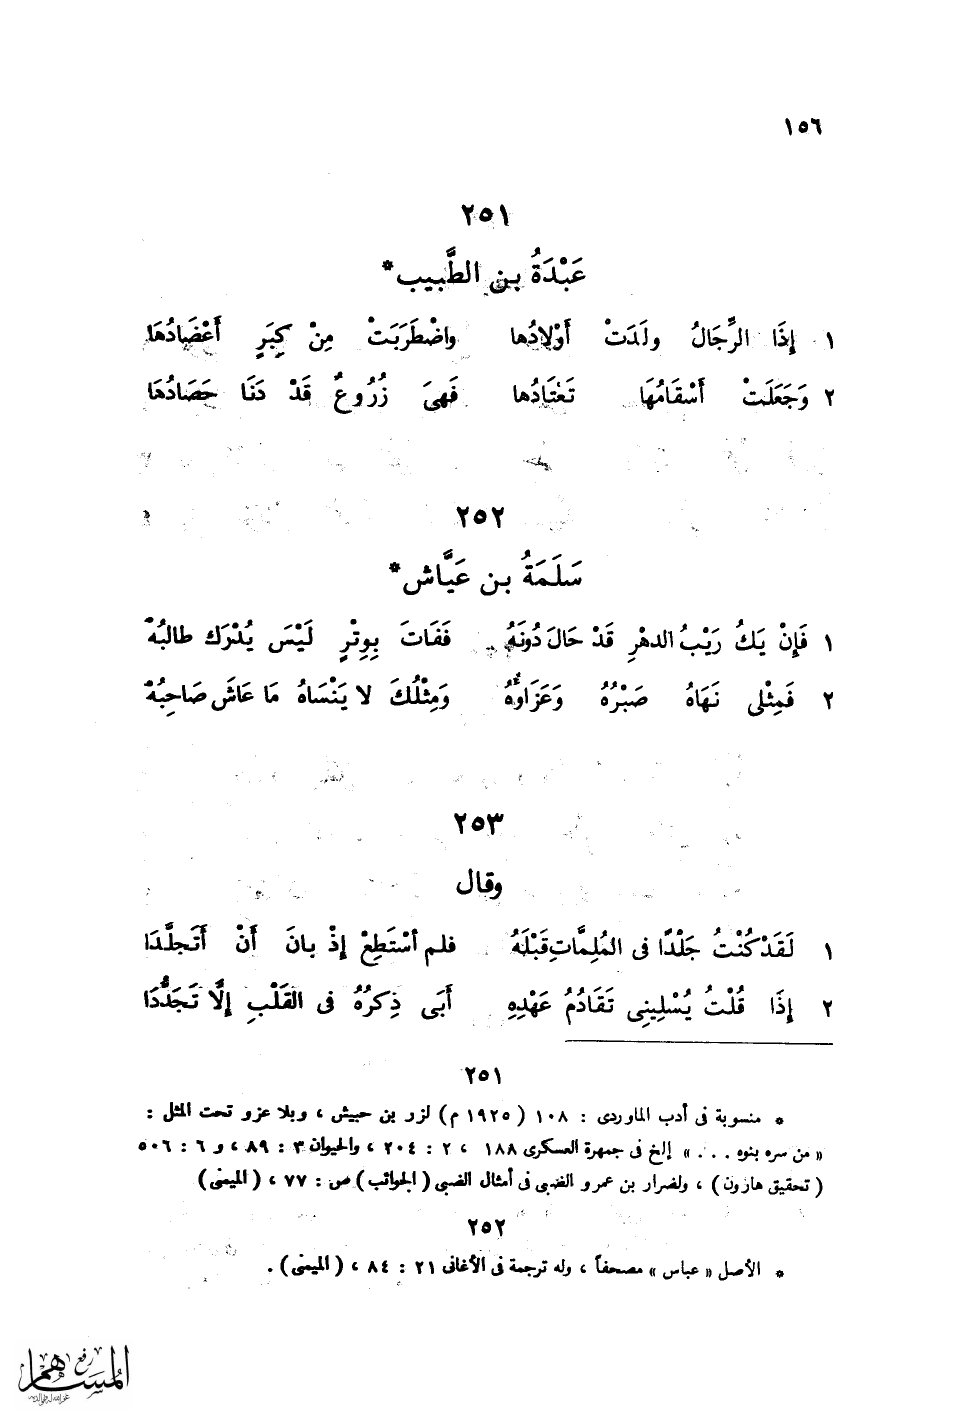 ١٥٦
٢٥١
عَبْدَةُ بن الطَّبيب*
١ إِذَا الرِّجَالُ ولَدَتْ أَوْلادُها واضْطَرَبَتْ مِنْ كِبَرٍ أَعْضَادُهَا
٢ وَجَعَلَتْ أَسْقَامُهَا تَعْتَادُها فَهِىَ زُرُوعٌ قَدْ دَنَا حَصَادُهَا
٢٥٢
سَلَمَةُ بن عَيَّاش*
١ فَإِنْ يَكُ رَيْبُ الدهْرِ قَدْ حَالَ دُونَهُ فَفَاتَ بِوِتْرٍ لَيْسَ يُدْرَك طالبُهْ
٢ فَمِثْلِى نَهَاهُ صَبْرُهُ وَعَزَاؤُهُ وَمِثْلُكَ لا يَنْسَاهُ مَا عَاشَ صَاحِبُهْ
٢٥٣
وقال
١ لَقَدْ كُنْتُ جَلْدًا فى المُلِمَّاتِ قَبْلَهُ فلم أسْتَطِعْ إِذْ بانَ أَنْ أَتَجلَّدَا
٢ إِذَا قُلْتُ يُسْلِينِى تَقَادُمُ عَهْدِهِ أَبَى ذِكرُهُ فى القَلْبِ إِلَّا تَجَدُّدَا
٢٥١
* منسوبة فى أدب الماوردى : ١٠٨ ( ١٩٢٥ م ) لزر بن حبيش ، وبلا عزو تحت المثل :
« من سره بنوه . . . » إلخ فى جمهرة العسكرى ١٨٨ ، ٢ : ٢٠٤ ، والحيوان ٣ : ٨٩ ، و ٦ : ٥٠٦
( تحقيق هارون ) ، ولضرار بن عمرو الضبى فى أمثال الضبى ( الجوائب ) ص : ٧٧ ، ( الميمنى )
٢٥٢
* الأصل « عباس » مصحفاً ، وله ترجمة فى الأغانى ٢١ : ٨٤ ، ( الميمنى ) .